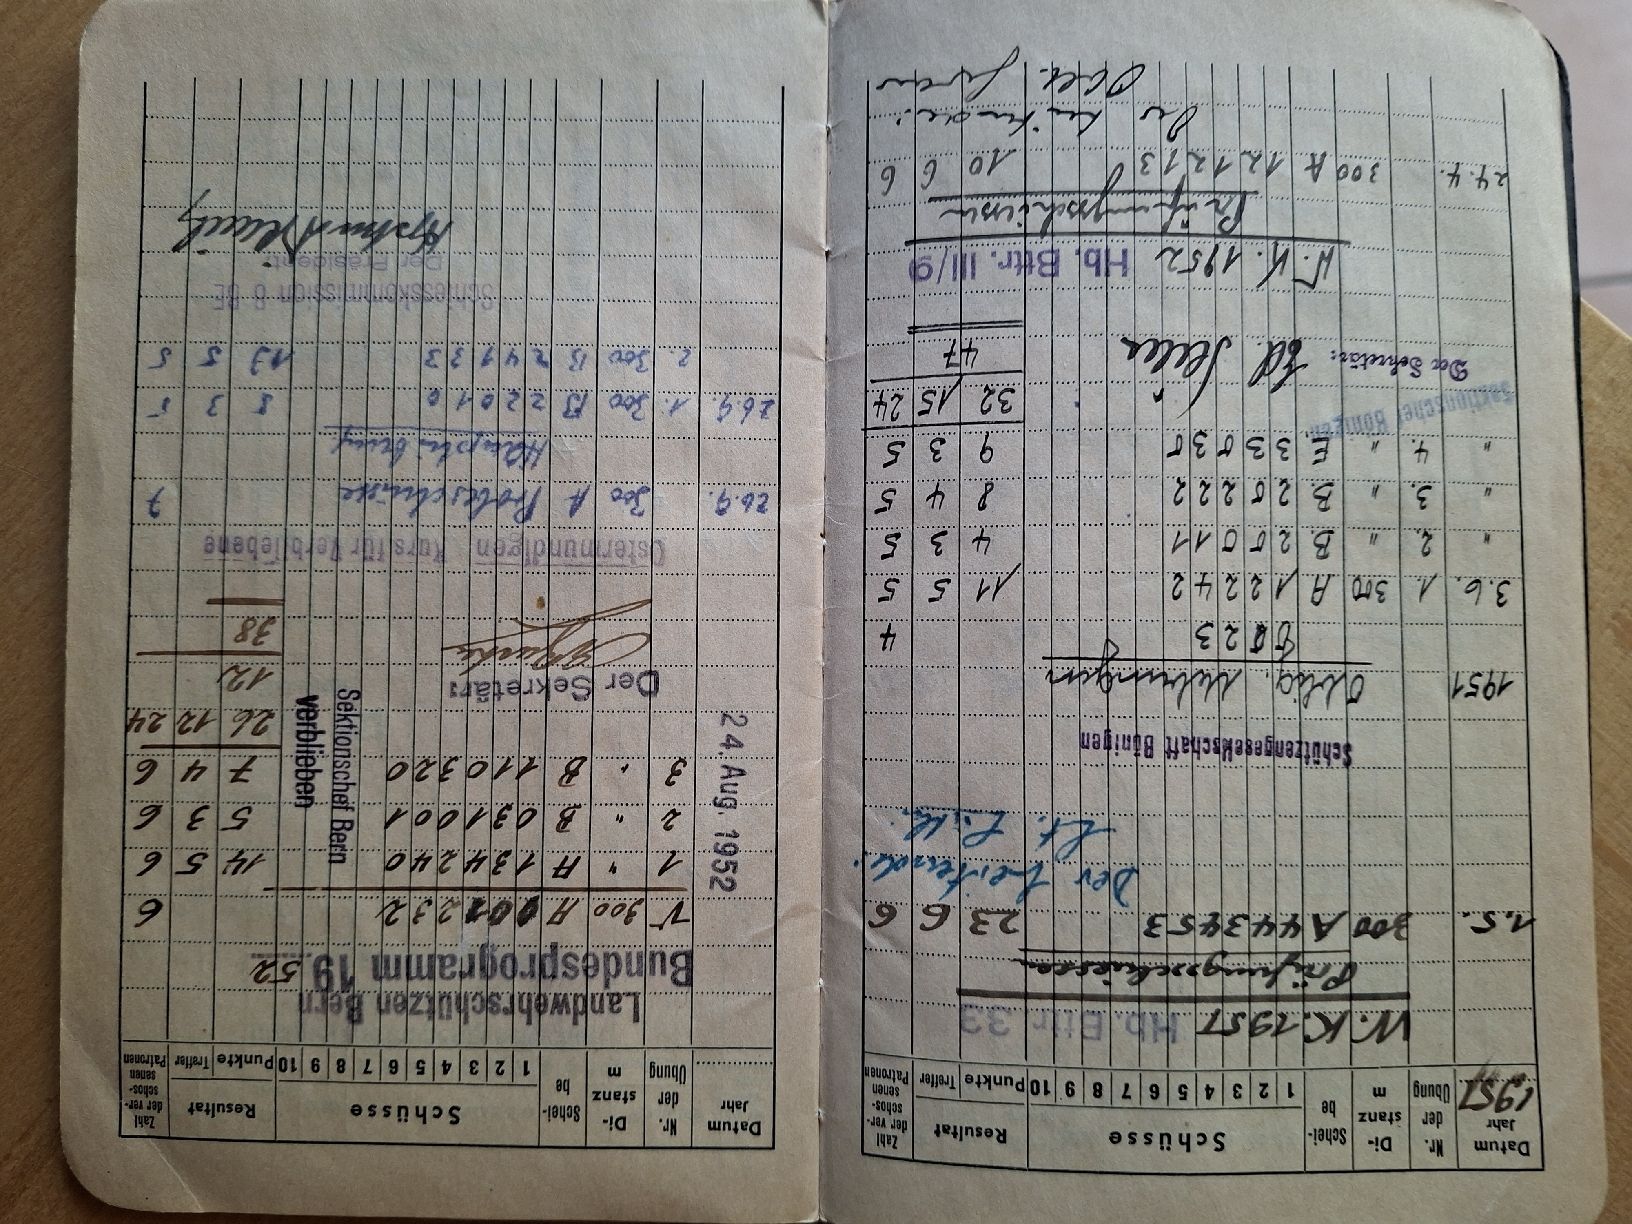 Datum Jahr Nr. der Übung Di- stanz m Schei- be Schüsse Resultat Zahl der ver- schos- senen Patronen
1951 1 2 3 4 5 6 7 8 9 10 Punkte Treffer
W.K. 1951 Hb. Bttr. 33
Prüfungsschiessen
1.5. 300 A 4 4 3 4 5 3 23 6 6
Der Leitende:
Lt.
Schützengesellschaft Bönigen
1951 Oblig. Uebungen
0 2 3 4
3.6. 1. 300 A 1 2 2 4 2 11 5 5
" 2. " B. 2 0 0 1 1 4 3 5
" 3. " B. 2 0 2 2 2 8 4 5
" 4. " E. 3 3 0 3 0 9 3 5
Sektionschef Bönigen 32 15 24
Der Sekretär: 47
W.K. 1952 Hb. Bttr. III/9
Prüfungsschiessen
24.4. 300 A 1 2 1 2 1 3 10 6 6
Der Leitende:
Oblt.
Datum Jahr Nr. der Übung Di- stanz m Schei- be Schüsse Resultat Zahl der ver- schos- senen Patronen
1 2 3 4 5 6 7 8 9 10 Punkte Treffer
Landwehrschützen Bern
Bundesprogramm 19 52
V 300 A 0 0 1 2 3 2 6
24. Aug. 1952
1 " A 1 3 4 2 4 0 14 5 6
2 " B 0 3 1 0 0 1 5 3 6
3 " B 1 1 0 3 2 0 7 4 6
Sektionschef Bern
verblieben
26 12 24
Der Sekretär: 12
38
Ostermundigen Kurs für Verbliebene
26.9. 300 A Probeschüsse 7
Hauptübung
26.9. 1. 300 B 2 2 0 1 0 5 3 5
2. 300 B 2 4 1 3 3 13 5 5
Schiesskommission 6 BE
Der Präsident: